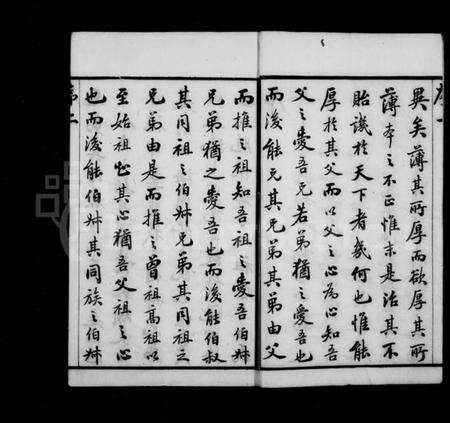 異矣薄其所厚而欲厚其所
薄本之不正惟末是治其不
貽譏於天下者幾何也惟能
厚於其父而以父之心為心知吾
父之愛吾兄若弟猶之愛吾也
而後能兄其兄弟其弟由父
而推之祖知吾祖之愛吾伯叔
兄弟猶之愛吾也而後能伯叔
其同祖之伯叔兄弟其同祖之
兄弟由是而推之曾祖高祖以
至始祖此其心猶吾父祖之心
也而後能伯叔其同族之伯叔
序二